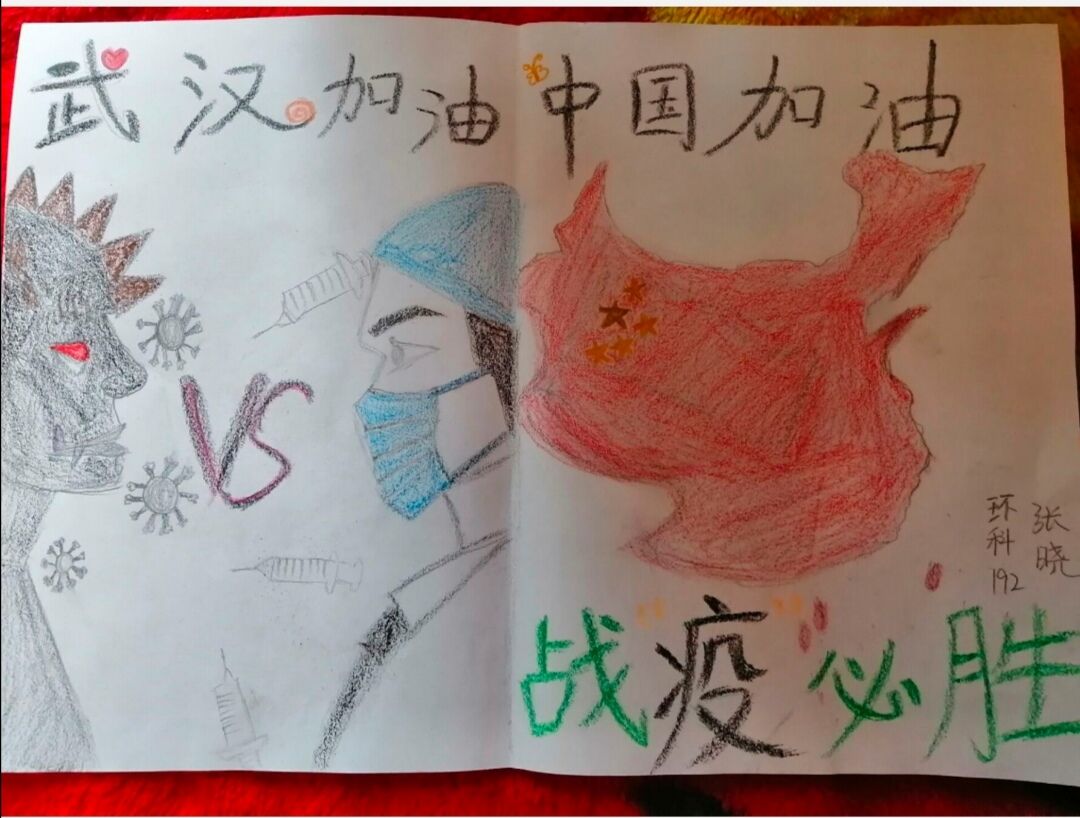 武汉加油中国加油
VS
环科192
张晓
战"疫"必胜